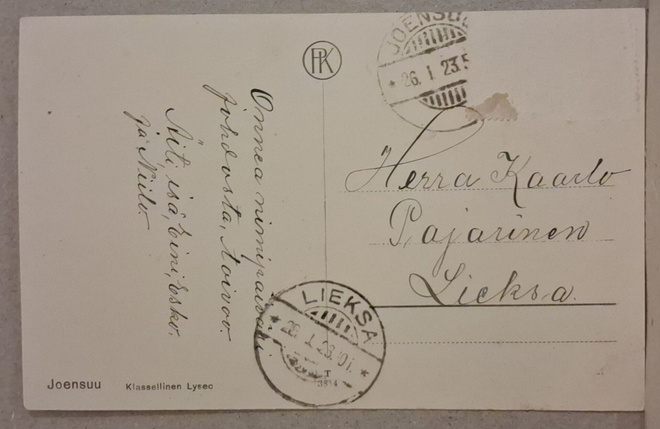 PK
JOENSUU
26. I 23.5
Onnea nimipäiväsi
johdosta, toivoo.
Äiti, isä, Eini, Esko.
ja Niilo.
Herra Kaarlo
Pajarinen
Lieksa.
LIEKSA
26. I. 23. 10
3814
Joensuu Klassellinen Lyseo